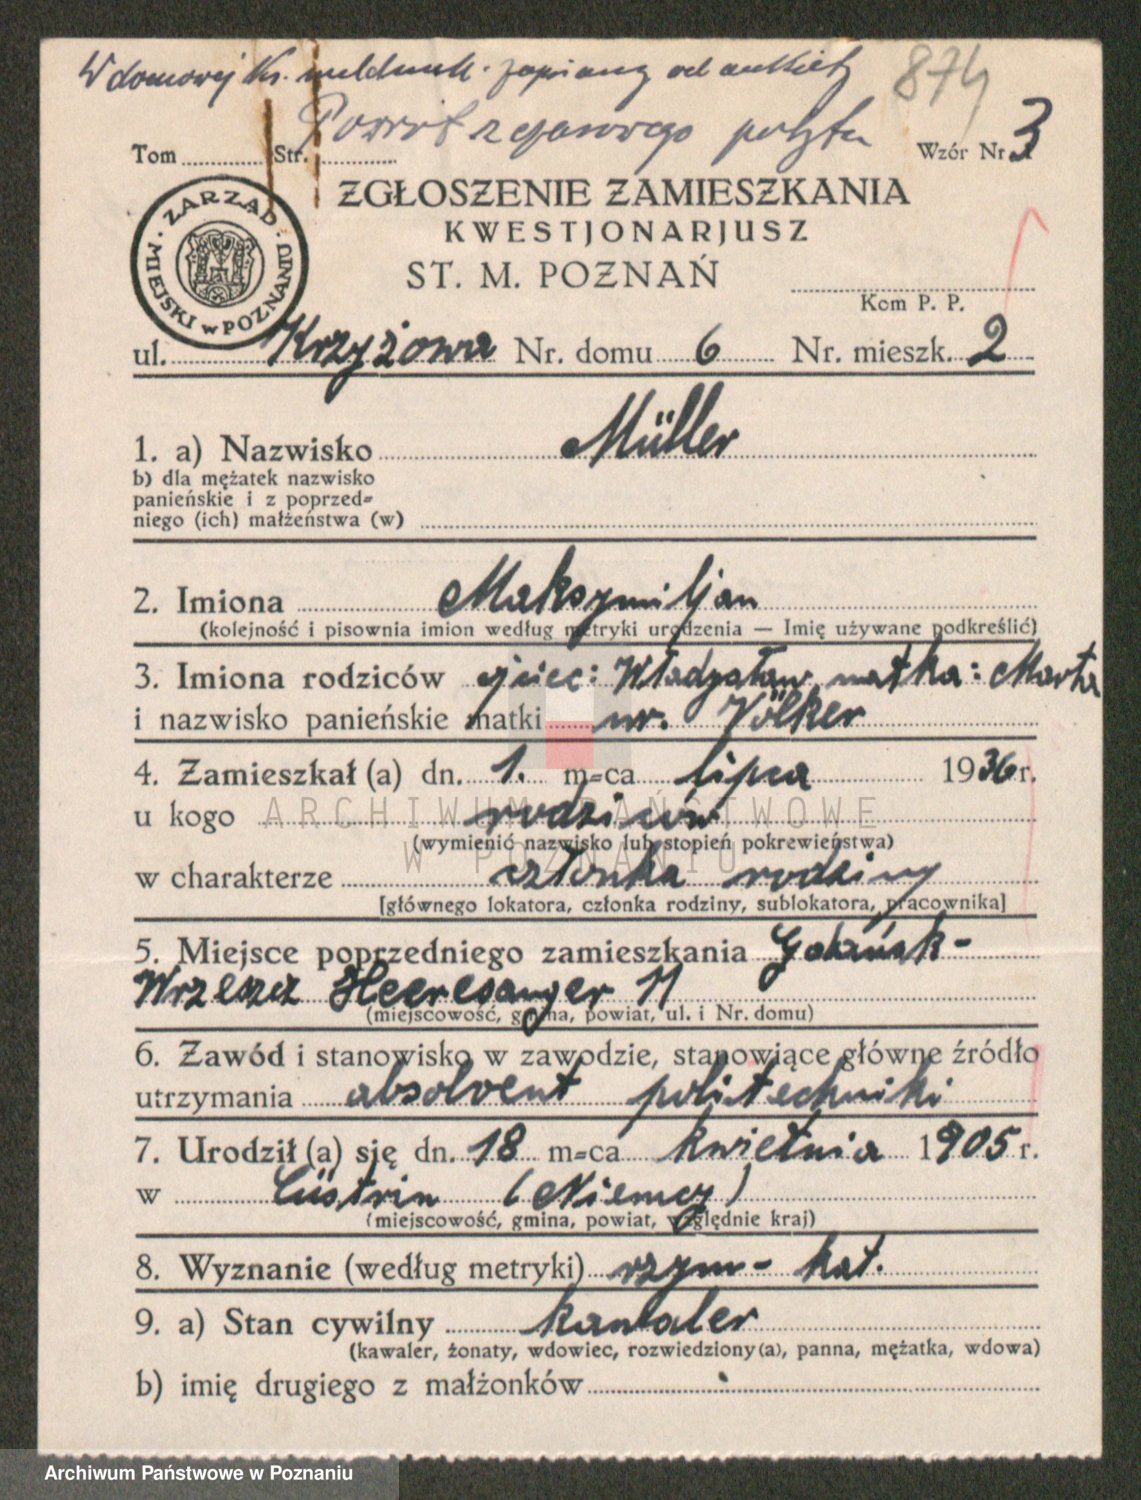 W domowej ks. meldunk. zapisany od ankiety
874
Powrót z czasowego pobytu
Tom ............ Str. ............
Wzór Nr 3
ZARZĄD MIEJSKI w POZNANIU
ZGŁOSZENIE ZAMIESZKANIA
KWESTJONARJUSZ
ST. M. POZNAŃ
Kom P. P.
ul. Krzyżowa Nr. domu 6 Nr. mieszk. 2
1. a) Nazwisko Müller
b) dla mężatek nazwisko
panieńskie i z poprzed=
niego (ich) małżeństwa (w)
2. Imiona Maksymiljan
(kolejność i pisownia imion według metryki urodzenia — Imię używane podkreślić)
3. Imiona rodziców ojciec: Władysław matka: Marta
i nazwisko panieńskie matki ur. Völker
4. Zamieszkał (a) dn. 1. m=ca lipca 1936 r.
u kogo rodziców
(wymienić nazwisko lub stopień pokrewieństwa)
w charakterze członka rodziny
[głównego lokatora, członka rodziny, sublokatora, pracownika]
5. Miejsce poprzedniego zamieszkania Gdańsk-
Wrzeszcz Heeresanger 11
(miejscowość, gmina, powiat, ul. i Nr. domu)
6. Zawód i stanowisko w zawodzie, stanowiące główne źródło
utrzymania absolwent politechniki
7. Urodził (a) się dn. 18 m=ca kwietnia 1905 r.
w Cüstrin (Niemcy)
(miejscowość, gmina, powiat, względnie kraj)
8. Wyznanie (według metryki) rzym- kat.
9. a) Stan cywilny kawaler
(kawaler, żonaty, wdowiec, rozwiedziony (a), panna, mężatka, wdowa)
b) imię drugiego z małżonków
ARCHIWUM PAŃSTWOWE
W POZNANIU
Archiwum Państwowe w Poznaniu